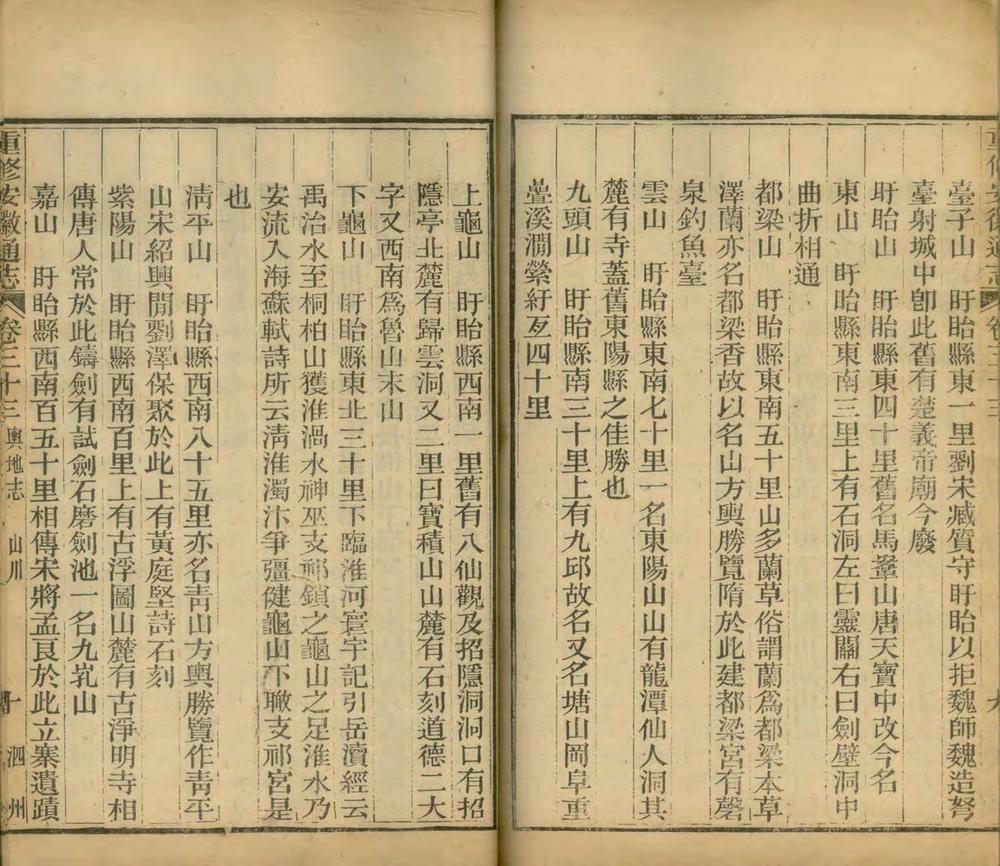 臺子山　盱眙縣東一里劉宋臧質守盱眙以拒魏師魏造弩
臺射城中卽此舊有楚義帝廟今廢
盱眙山　盱眙縣東四十里舊名馬鞌山唐天寶中改今名
東山　盱眙縣東南三里上有石洞左曰靈關右曰劍壁洞中
曲折相通
都梁山　盱眙縣東南五十里山多蘭草俗謂蘭爲都梁本草
澤蘭亦名都梁香故以名山方輿勝覽隋於此建都梁宮有磬
泉釣魚臺
雲山　盱眙縣東南七十里一名東陽山山有龍潭仙人洞其
麓有寺蓋舊東陽縣之佳勝也
九頭山　盱眙縣南三十里上有九邱故名又名塘山岡阜重
疊溪澗縈紆亙四十里
上龜山　盱眙縣西南一里舊有八仙觀及招隱洞洞口有招
隱亭北麓有歸雲洞又二里曰寶積山山麓有石刻道德二大
字又西南爲魯山末山
下龜山　盱眙縣東北三十里下臨淮河寰宇記引岳瀆經云
禹治水至桐柏山獲淮渦水神巫支祁鎖之龜山之足淮水乃
安流入海蘇軾詩所云淸淮濁汴爭彊健龜山下瞰支祁宮是
也
淸平山　盱眙縣西南八十五里亦名靑山方輿勝覽作靑平
山宋紹興閒劉澤保聚於此上有黃庭堅詩石刻
紫陽山　盱眙縣西南百里上有古浮圖山麓有古淨明寺相
傳唐人常於此鑄劍有試劍石磨劍池一名九乳山
嘉山　盱眙縣西南百五十里相傳宋將孟良於此立寨遺蹟
重修安徽通志　卷三十三　輿地志　山川　十　泗州